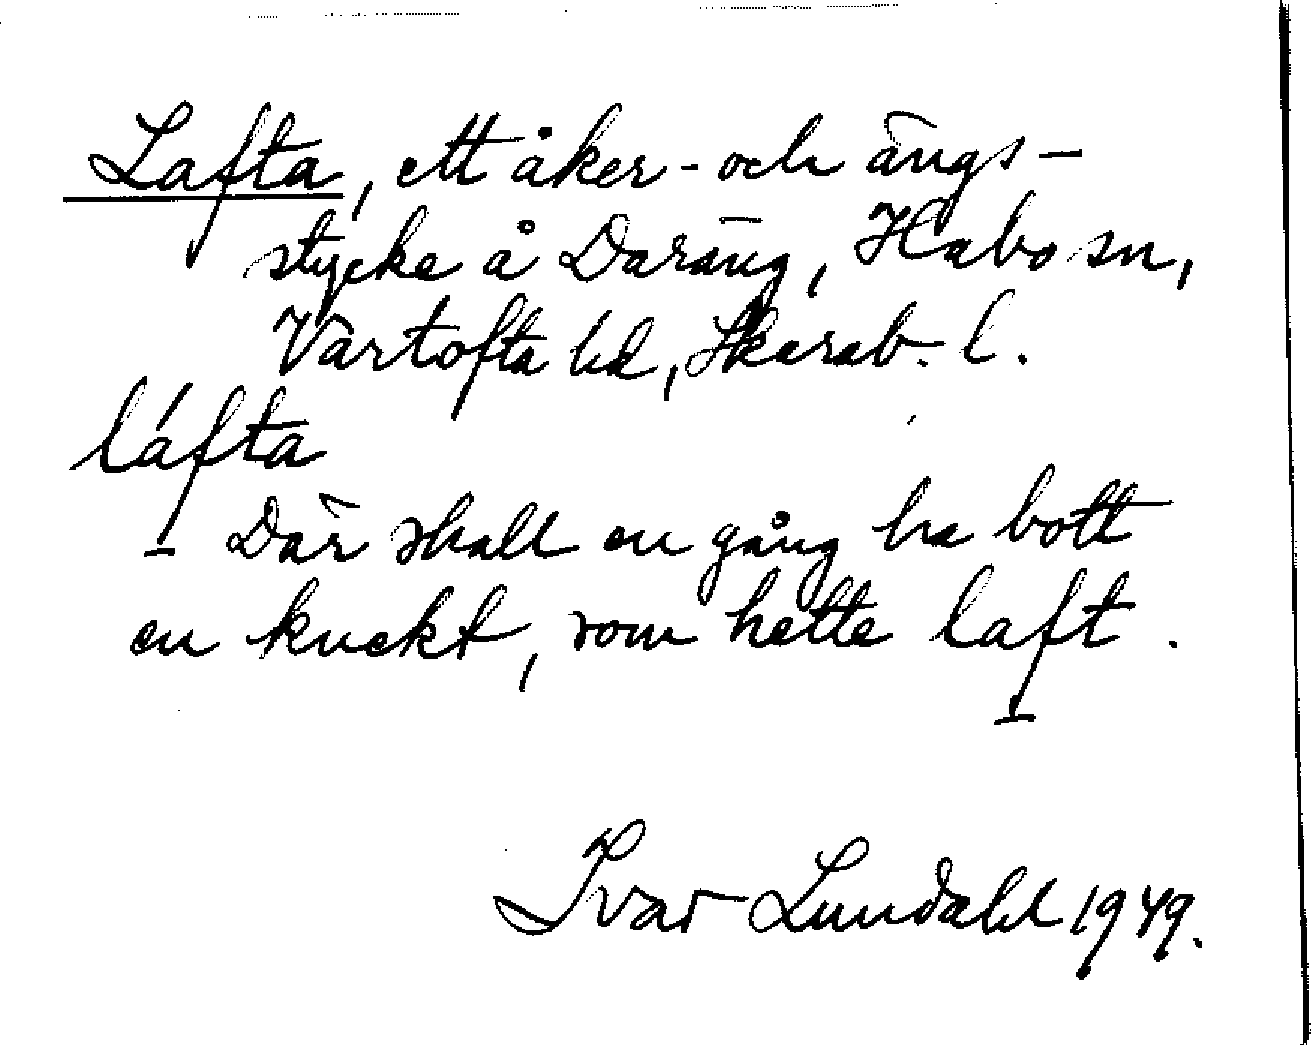 Lafta, ett åker- och ängs-
stycke å Daräng, Habo sn,
Vartofta hd, Skarab. l.
láfta
Där skall en gång ha bott
en knekt, som hette laft.
Ivar Lundahl 1949.